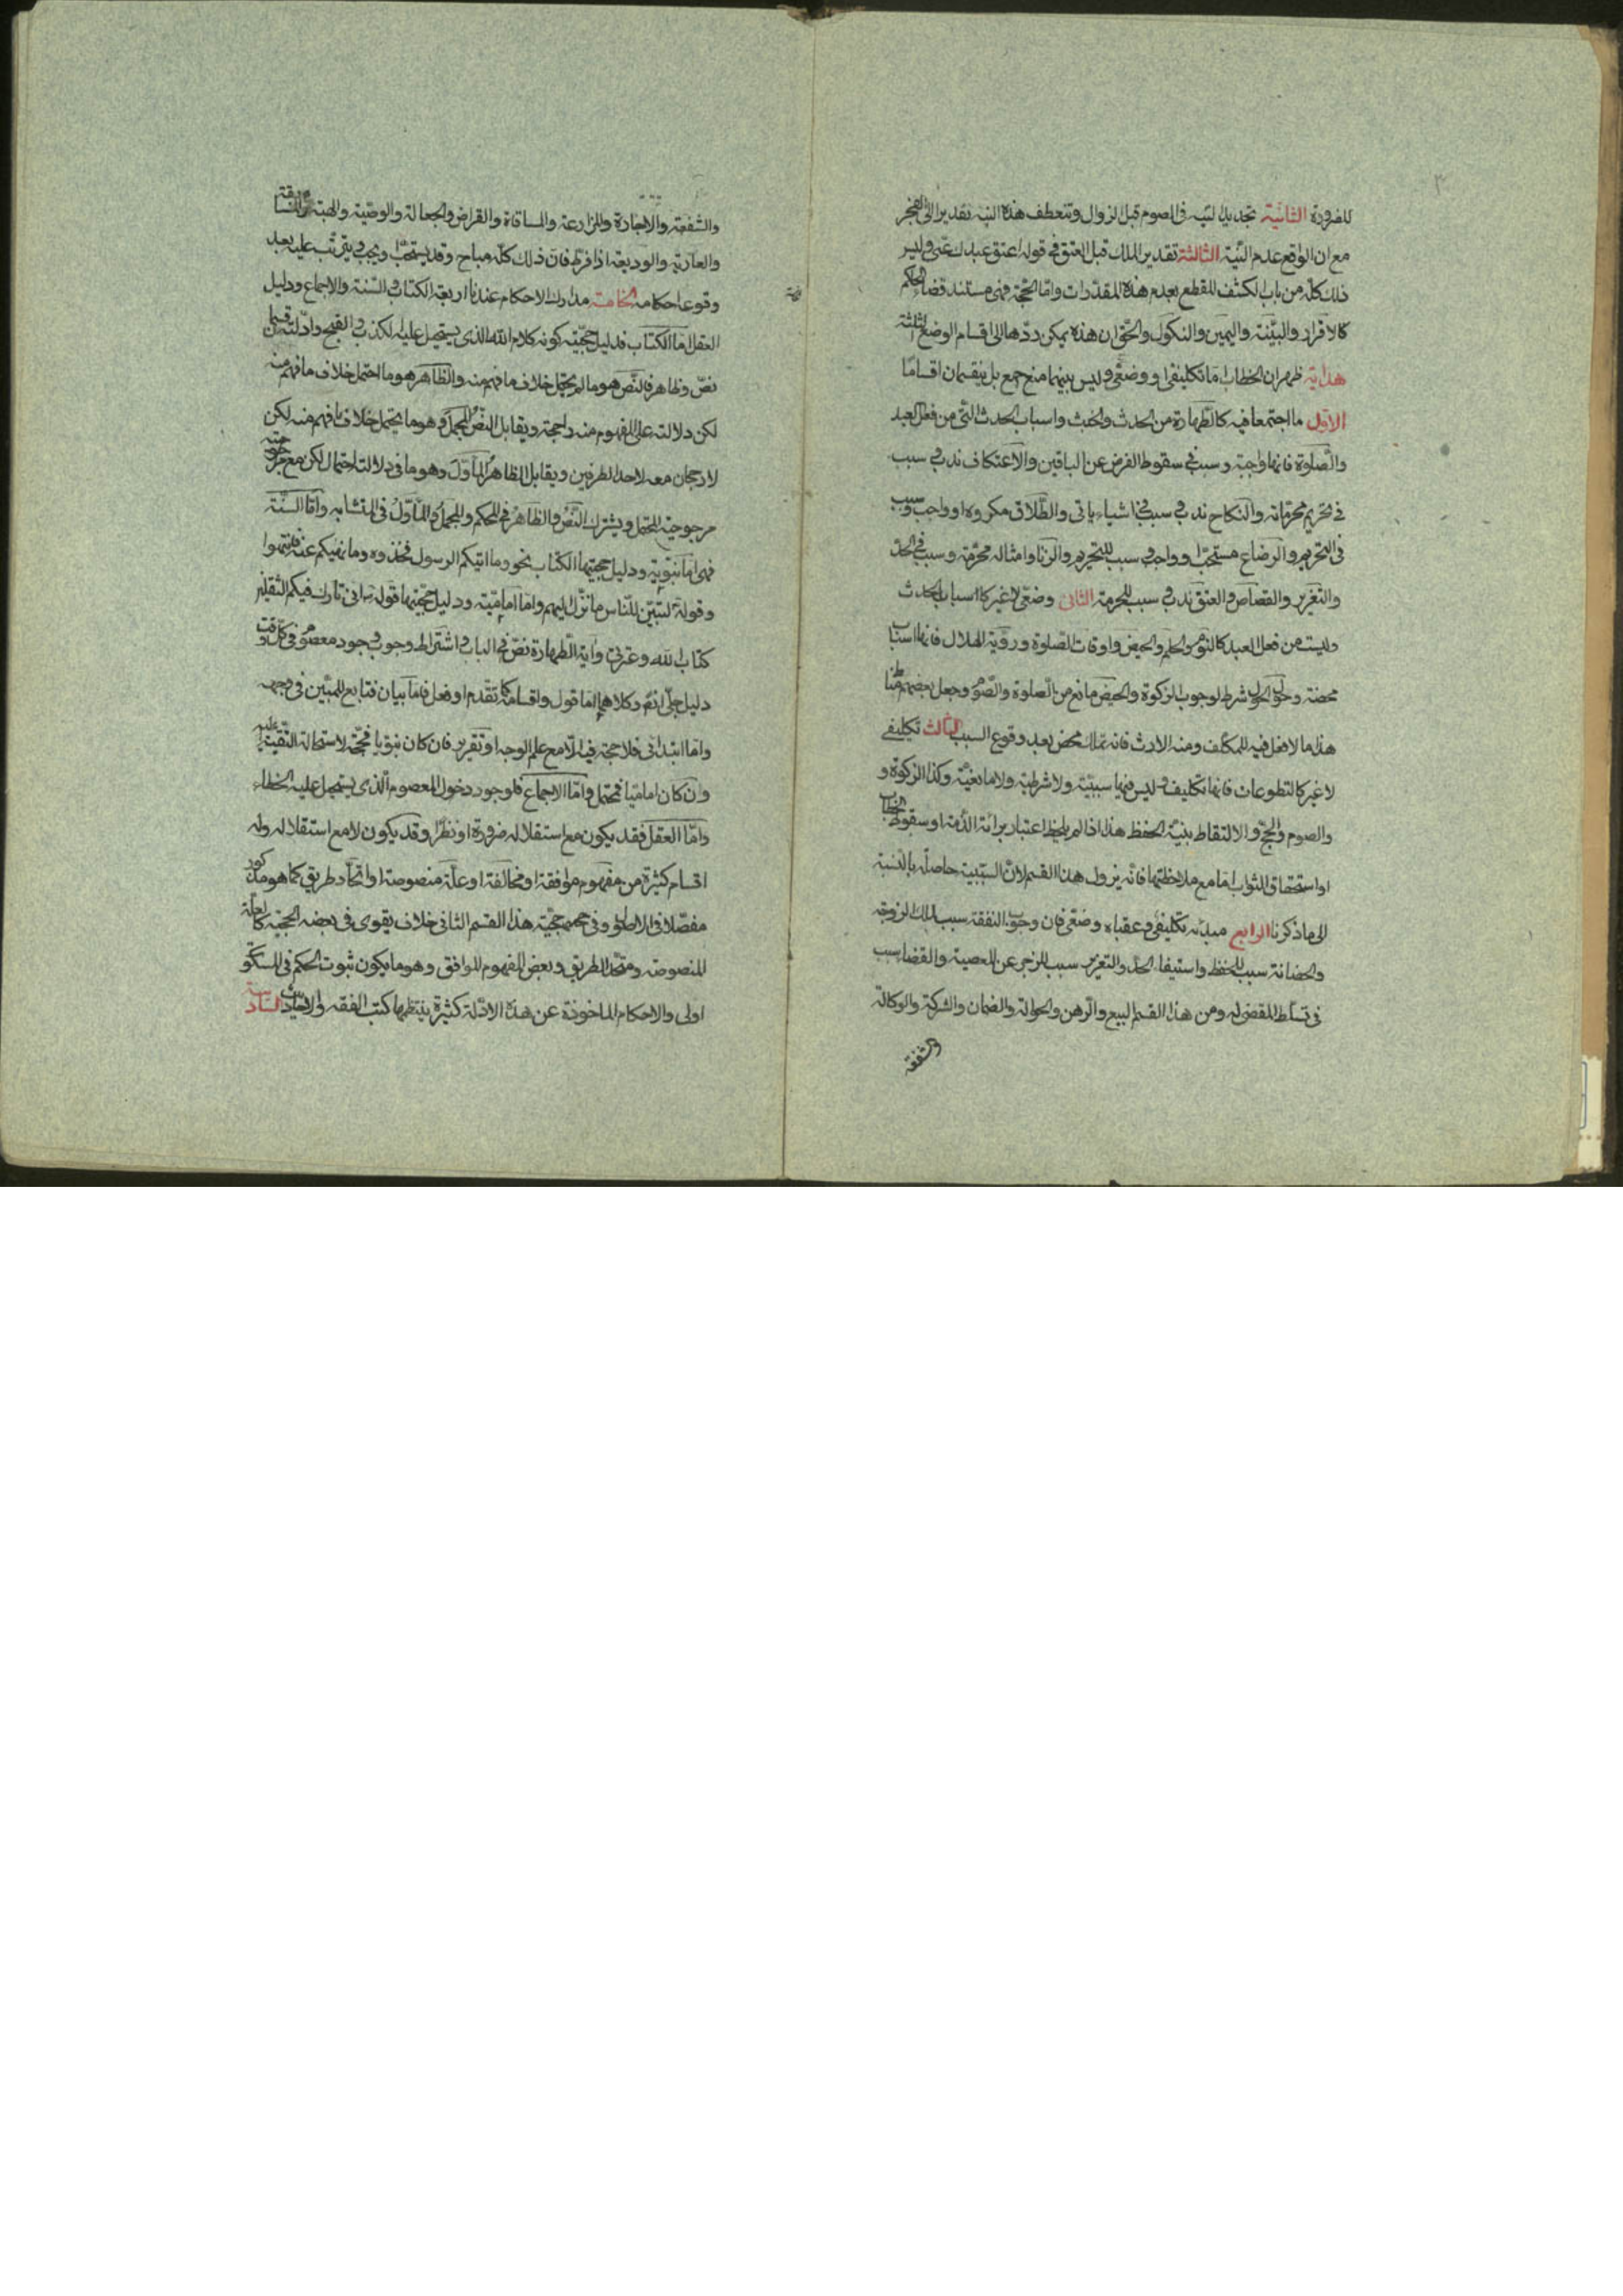 ٣
للضرورة الثانية تجديد النية فى الصوم قبل الزوال وتنعطف هذه النية تقديرا الى الفجر
مع ان الواقع عدم النية الثالثة تقدير الملك قبل العتق فى قوله اعتق عبدك عنى وليس
ذلك كله من باب الكشف للقطع بعدم هذه المقدرات واما الحجة فهى مستند قضاء الحاكم
كالاقرار والبينة واليمين والنكول والحق ان هذه يمكن ردها الى اقسام الوضع الثلثة
هداية ظهر ان الخطاب اما تكليفى او وضعى وليس بينهما منع جمع بل ينقسمان اقساما
الاول ما اجتمعا فيه كالطهارة من الحدث والخبث واسباب الحدث التى من فعل العبد
والصلوة فانها واجبة وسبب فى سقوط الفرض عن الباقين والاعتكاف ندب وسبب
فى تحريم محرماته والنكاح ندب وسبب فى اشياء ياتى والطلاق مكروه او واجب وسبب
فى التحريم والرضاع مستحب او واجب وسبب للتحريم والزنا وامثاله محرمة وسبب فى الحد
والتعزير والقصاص والعتق ندب وسبب للحرمة الثانى وضعى لا غير كاسباب الحدث
وليست من فعل العبد كالنوم والحلم والحيض واوقات الصلوة ورؤية الهلال فانها اسباب
محضة وحؤل الحول شرط لوجوب الزكوة والحيض مانع من الصلوة والصوم وجعل بعضهم
هذا ما لا فعل فيه للمكلف ومنه الارث فانه تملك محض بعد وقوع السبب الثالث تكليفى
لا غير كالتطوعات فانها تكليف وليس فيها سببية ولا شرطية ولا مانعية وكذا الزكوة و
والصوم والحج والالتقاط بنية الحفظ هذا اذا لم يلحظ اعتبار برائة الذمة او سقوط الخطاب
او استحقاق الثواب اما مع ملاحظتها فانه يزول هذا القسم لان السببية حاصلة بالنسبة
الى ما ذكرنا الرابع مبدئه تكليفى وعقباه وضعى فان وجوب النفقة سبب لملك الزوجة
والحضانة سبب للحفظ واستيفاء الحد والتعزير سبب للزجر عن المعصية والقضا سبب
فى تسلط المقضى له ومن هذا القسم البيع والرهن والحوالة والضمان والشركة والوكالة
والشفعة
والشفعة والاجارة والمزارعة والمساقاة والقراض والجعالة والوصية والهبة والمسابقة
والعارية والوديعة اذا فرط فان ذلك كله مباح وقد يستحب ويجب ويترتب عليه بعد
وقوعه احكامه الخامسة مدارك الاحكام عندنا اربعة الكتاب والسنة والاجماع ودليل
العقل اما الكتاب فدليل حجيته كونه كلام الله الذى يستحيل عليه الكذب والقبيح وادلته قسمان
نص وظاهر فالنص هو ما لم يحتمل خلاف ما فهم منه والظاهر هو ما احتمل خلاف ما فهم منه
لكن دلالته على المفهوم منه راجحة ويقابل النص المجمل وهو ما يحتمل خلاف ما فهم منه لكن
لا رجحان معه لاحد الطرفين ويقابل الظاهر المأول وهو ما فى دلالته احتمال لكن مع مرجوحيته
مرجوحية المحتمل ويشترك النص والظاهر فى المحكم والمجمل والمأول فى المتشابه واما السنة
فهى اما نبوية ودليل حجيتها الكتاب نحو وما اتيكم الرسول فخذوه وما نهيكم عنه فانتهوا
وقوله لتبين للناس ما نزل اليهم واما امامية ودليل حجيتها قوله انى تارك فيكم الثقلين
كتاب الله وعترتى واية الطهارة نص فى الباب واشتراط وجوب وجود معصوم فى كل وقت
دليل جلى ثم وكلاهما اما قول واقسامه كما تقدم او فعل فاما بيان فتابع للمبين فى وجهه
واما ابتدائى فلا حجة فيه الا مع علم الوجه او تقرير فان كان نبويا فحجة لاستحالة التقية عليه
وان كان اماميا فمحتمل واما الاجماع فلوجود دخول المعصوم الذى يستحيل عليه الخطاء
واما العقل فقد يكون مع استقلاله ضرورة او نظرا وقد يكون لا مع استقلاله وله
اقسام كثيرة من مفهوم موافقة او مخالفة او علة منصوصة او اتحاد طريق كما هو مذكور
مفصلا فى الاصول وفى حجية هذا القسم الثانى خلاف يقوى فى بعضه الحجية كالعلة
المنصوصة ومتحد الطريق وبعض المفهوم الموافق وهو ما يكون ثبوت الحكم فى المسكوت
اولى والاحكام الماخوذة عن هذه الادلة كثيرة ينتظمها كتب الفقه والاحياء السادسة